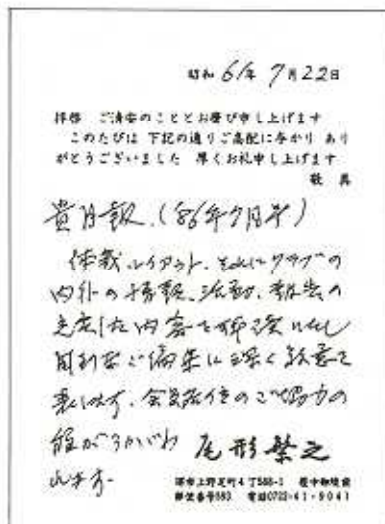 昭和 61年 7月22日
拝啓 ご清安のこととお慶び申し上げます
このたびは 下記の通りご高配に与かり あり
がとうございました 厚くお礼申し上げます
敬具
貴月報、(86年7月号)
体裁、レイアウト、それにクラブの
内外の情報、活動、報告の
充実した内容を
ご編集に深く敬意を
表します。会員各位のご協力の
程がうかがわ
尾形繁之
れます。
堺市上野芝町4丁588-1
郵便番号593 電話0722-41-9041